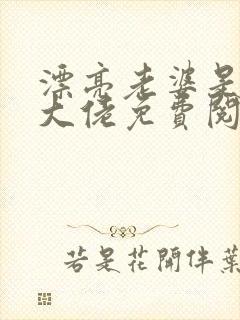 漂亮老婆是
大佬免費閱
若是花開伴葉